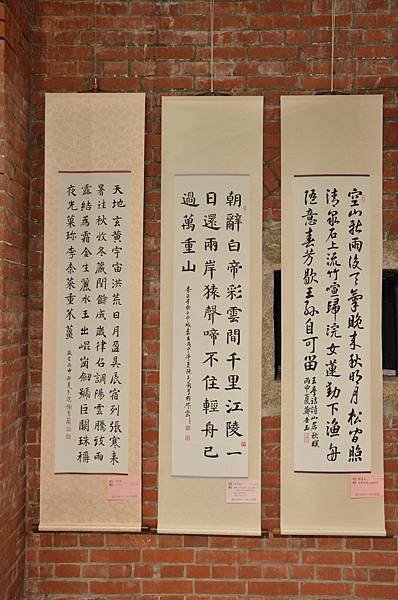 空山新雨後天氣晚來秋明月松間照
清泉石上流竹喧歸浣女蓮動下漁舟
隨意春芳歇王孫自可留
王摩詰詩山居秋暝
丙申夏
朝辭白帝彩雲間千里江陵一
日還兩岸猿聲啼不住輕舟已
過萬重山
天地玄黃宇宙洪荒日月盈昃辰宿列張寒来
暑往秋收冬藏閏餘成歲律呂調陽雲騰致雨
露結為霜金生麗水玉出崐崗劍號巨闕珠稱
夜光菓珍李柰菜重芥薑